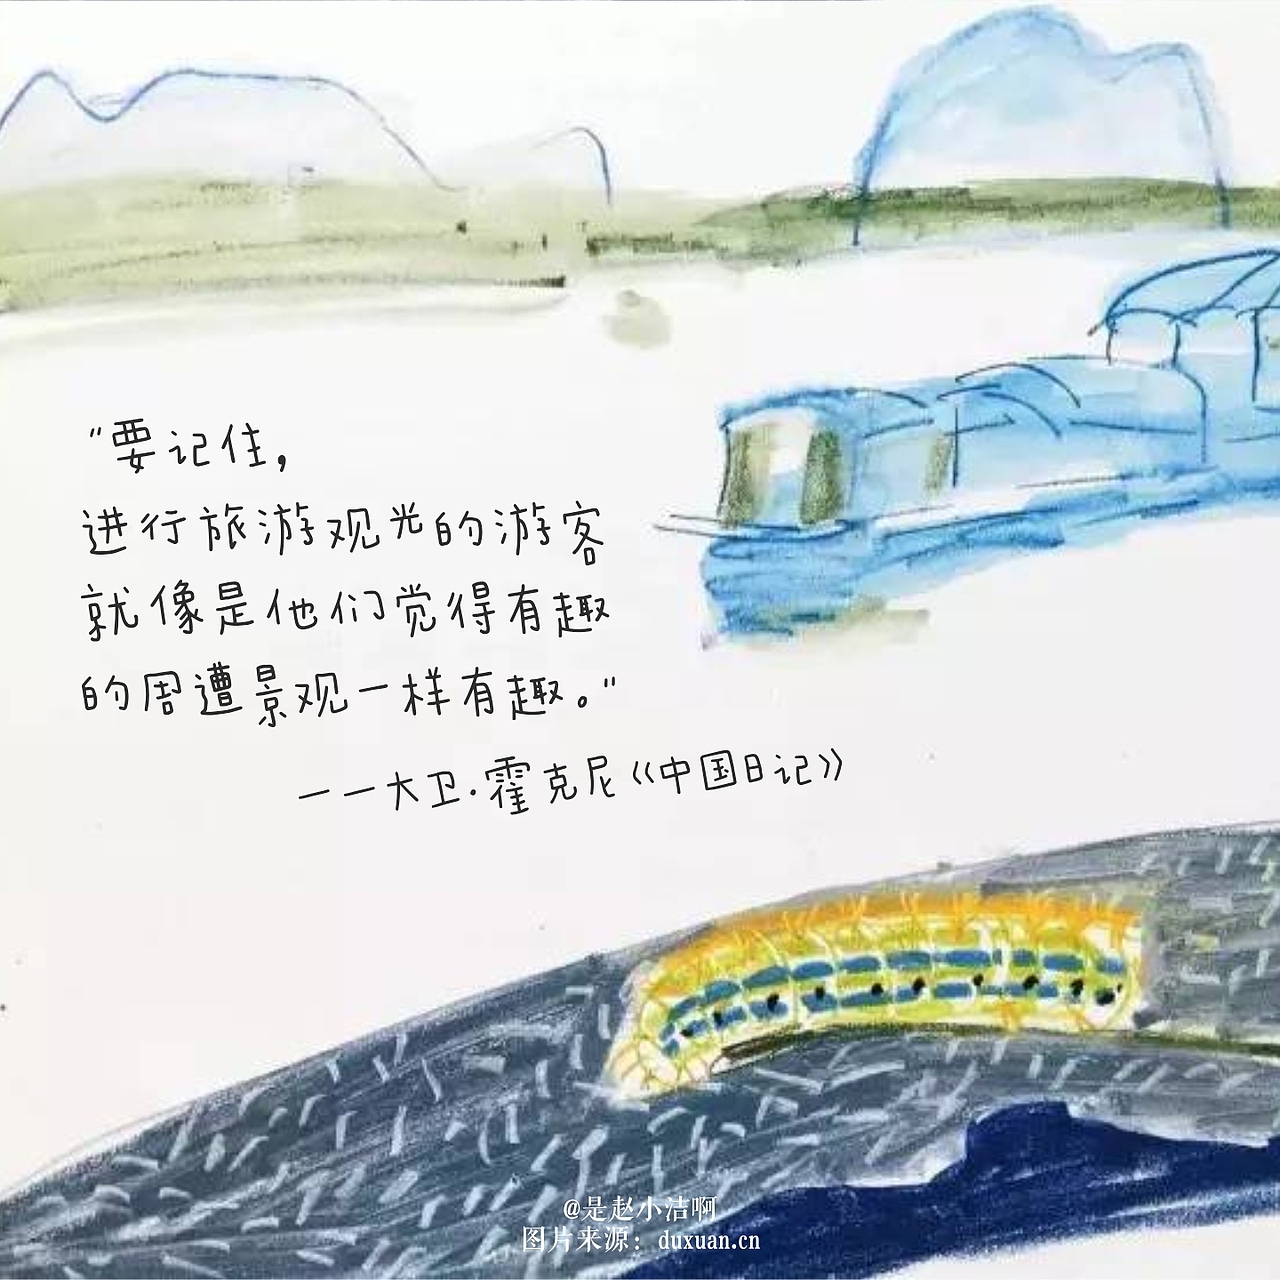 “要记住，
进行旅游观光的游客
就像是他们觉得有趣
的周遭景观一样有趣。”
——大卫·霍克尼《中国日记》
@是赵小洁啊
图片来源：duxuan.cn